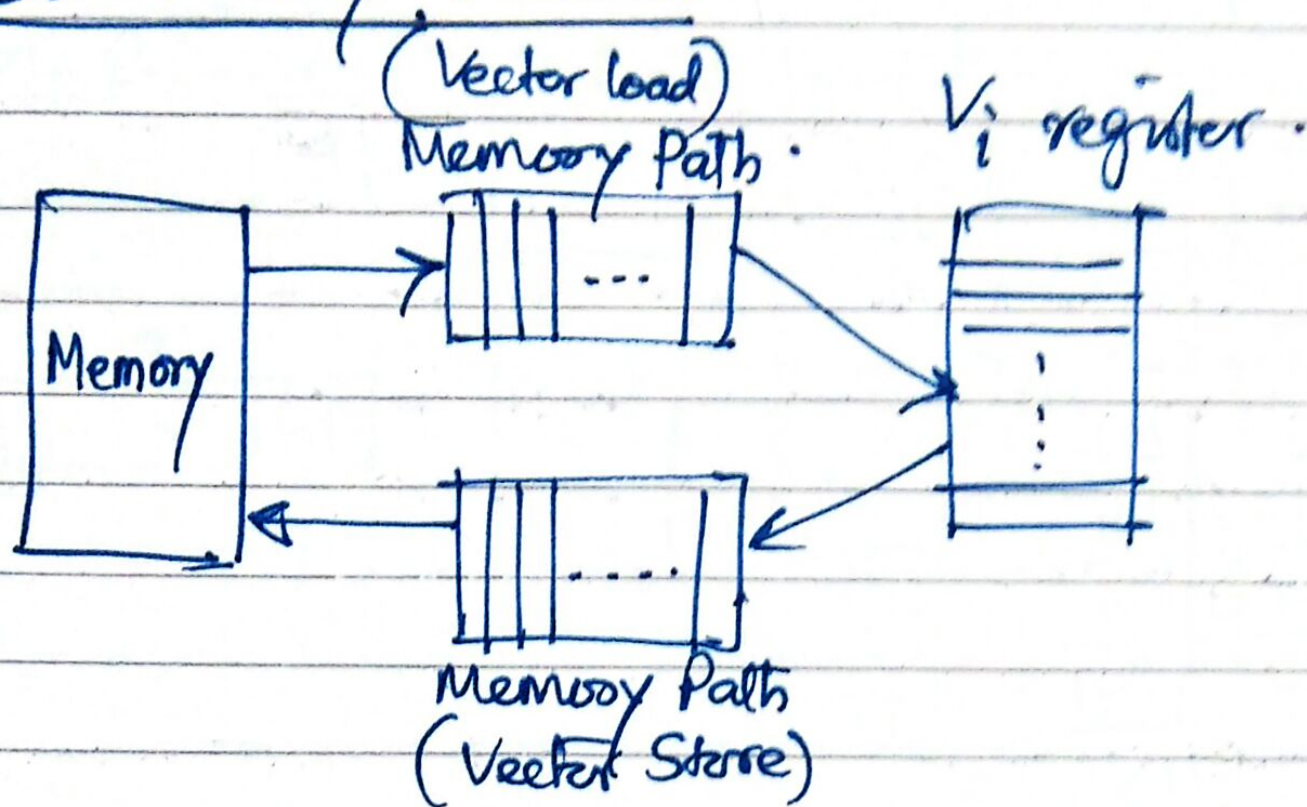 (Vector load)
Memory Path.
Vi register.
Memory
Memory Path
(Vector Store)